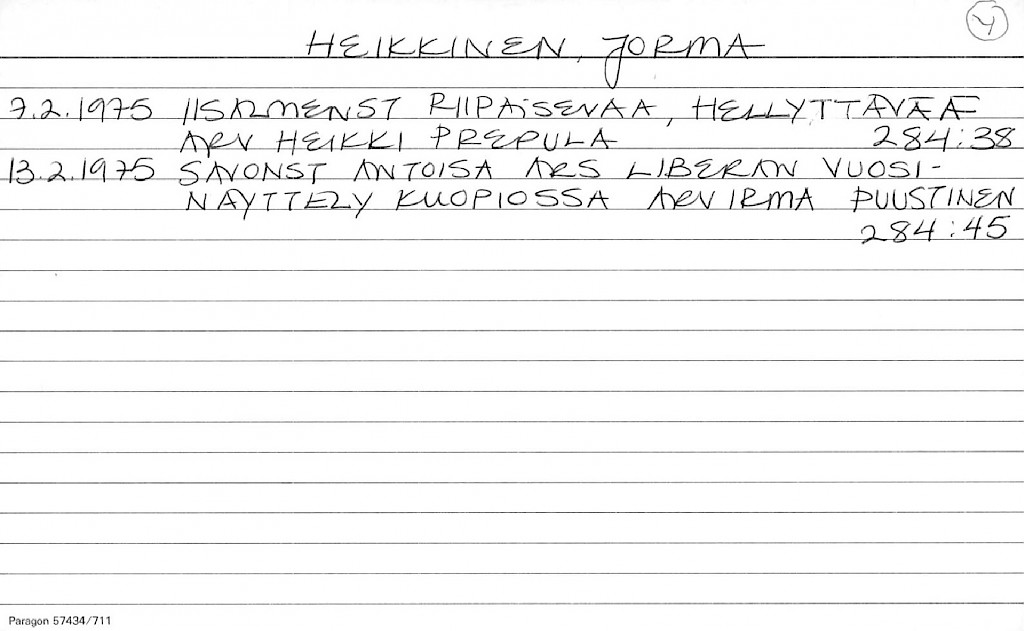 Y
HEIKKINEN, JORMA
7.2.1975 IISALMENST RIIPAISEVAA, HELLYTTÄVÄÄ
ARV HEIKKI PREPULA 284:38
13.2.1975 SAVONST ANTOISA ARS LIBERAN VUOSI-
NÄYTTELY KUOPIOSSA ARV IRMA PUUSTINEN
284:45
Paragon 57434/711